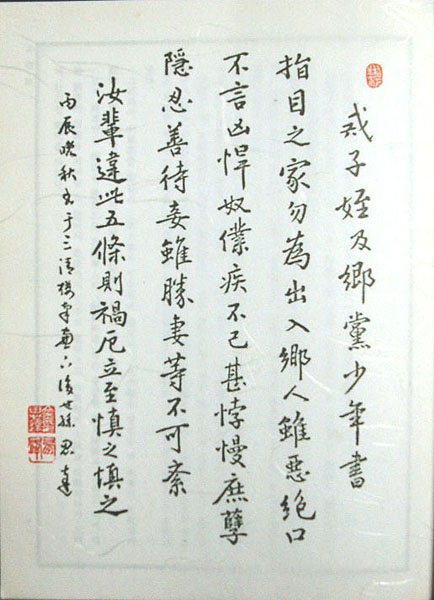 戒子姪及鄉黨少年書
指目之家勿為出入鄉人雖惡絕口
不言凶悍奴僕疾不已甚悖慢庶孽
隱忍善待妾雖勝妻等不可紊
汝輩違此五條則禍厄立至慎之慎之
丙辰晚秋書于三清樓 六後世孫思達